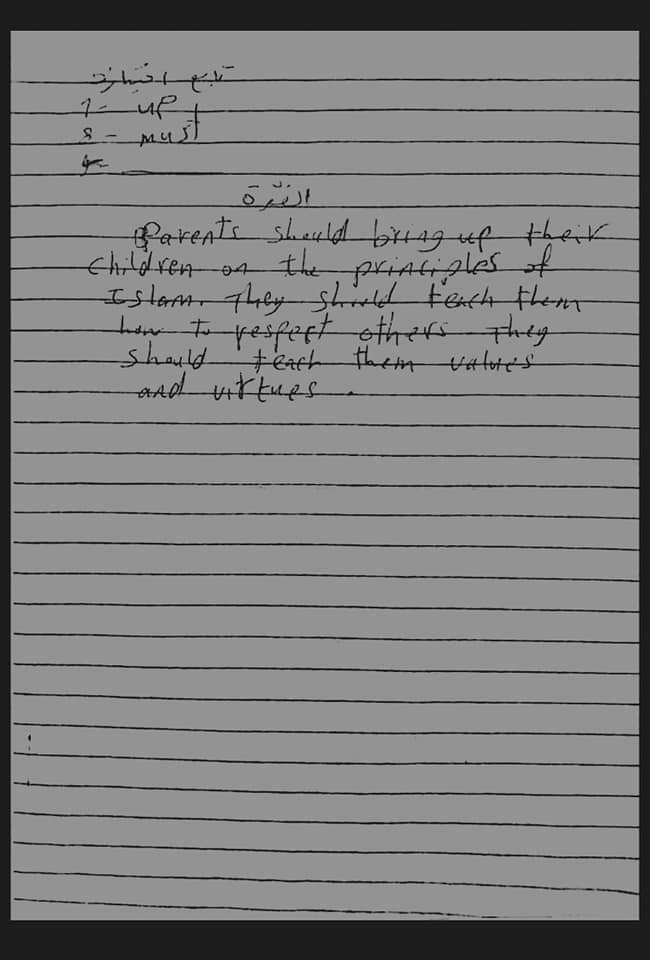 تابع اختيارات
7- up
8- must
الفقرة
Parents should bring up their
children on the principles of
Islam. They should teach them
how to respect others They
should teach them values
and virtues.